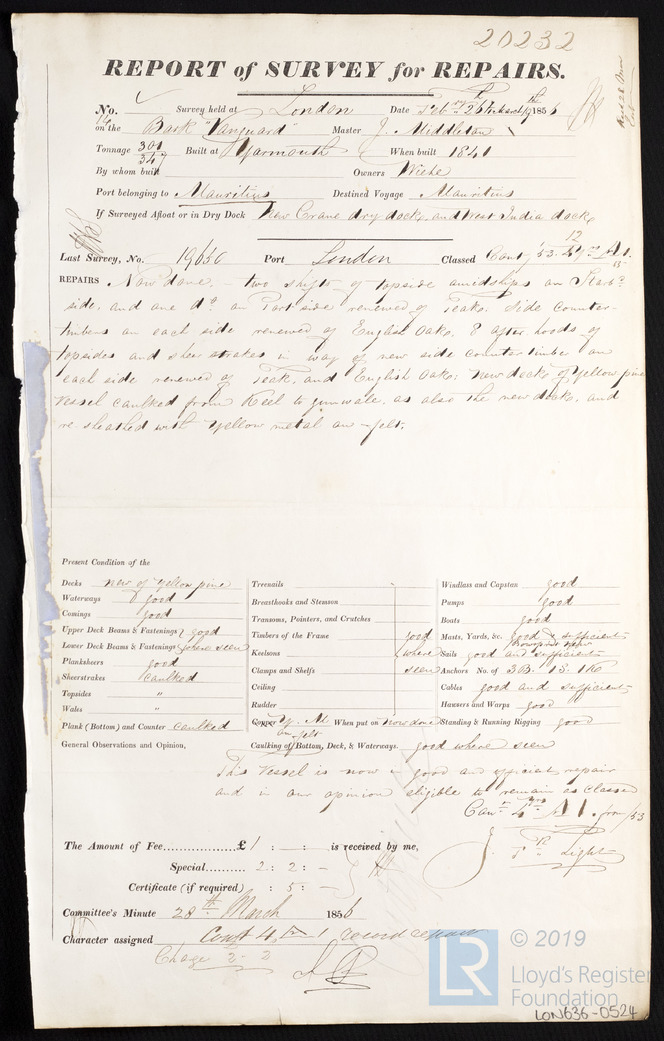 20232
REPORT of SURVEY for REPAIRS.
No. Survey held at London Date Feby 26th March 19th 1856
on the Bark "Vanguard" Master J. Middleton
Tonnage 301 Built at Yarmouth When built 1841
347
By whom built Owners Wiehe
Port belonging to Mauritius Destined Voyage Mauritius
If Surveyed Afloat or in Dry Dock New Crane dry dock, and West India dock,
Last Survey, No. 19650 Port London Classed Contg '53. 4 yrs A1.
REPAIRS Now done, - two shifts of topside amidships on Starbd
side, and one do. on Port side renewed of Teak. Side counter-
timbers on each side renewed of English Oak, & after hoods of
topsides and sheer strakes in way of new side counter timber on
each side renewed of Teak, and English Oak; New decks of Yellow pine
Vessel caulked from Keel to gunwale, as also the new decks, and
re sheathed with Yellow metal on felt.
Present Condition of the
Decks new of Yellow pine
Waterways good
Comings good
Upper Deck Beams & Fastenings good
Lower Deck Beams & Fastenings where seen
Planksheers good
Sheerstrakes caulked
Topsides "
Wales "
Plank (Bottom) and Counter caulked
Treenails
Breasthooks and Stemson
Transoms, Pointers, and Crutches
Timbers of the Frame good
Keelsons where
Clamps and Shelfs seen
Ceiling
Rudder
Copper Y. M When put on now done
on felt
Caulking of Bottom, Deck, & Waterways. good where seen
Windlass and Capstan good
Pumps good
Boats good
Masts, Yards, &c. good & sufficient
Bowsprit new
Sails good and sufficient
Anchors No. of 3B. 1S. 1Ke
Cables good and sufficient
Hawsers and Warps good
Standing & Running Rigging good
General Observations and Opinion,
This Vessel is now in good and efficient repair
and in our opinion eligible to remain as Classed
Conn 4 yrs A1. from /53
The Amount of Fee £1 : - : - is received by me,
Special 2 : 2 : -
Certificate (if required) : 5 : -
J. P. Light
Committee's Minute 28th March 1856
Character assigned Cont 4 A 1 record repair
Charge 2 - 2
LR
© 2019
Lloyd's Register
Foundation
LON636-0524